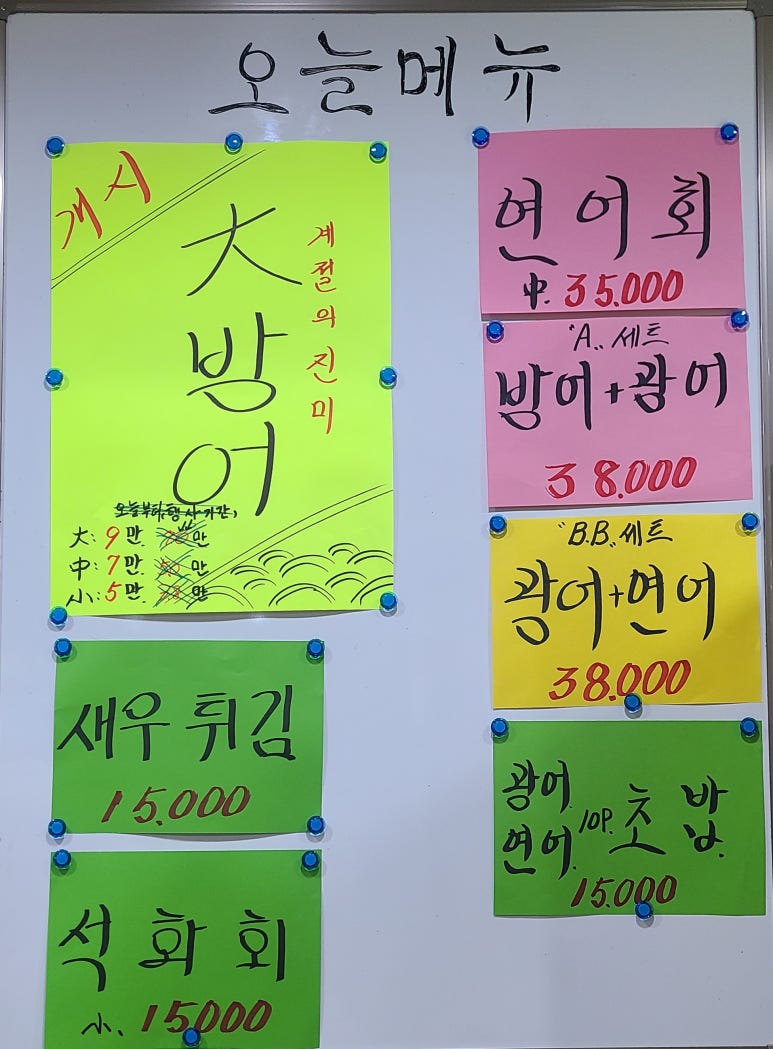 오늘메뉴
개시
大방어
계절의진미
오늘부터,행사기간,
大: 9만. 만
中: 7만. 만
小: 5만. 만
새우튀김
15.000
석화회
小. 15000
연어회
中. 35.000
"A„세트
방어+광어
38.000
"B.B„세트
광어+연어
38.000
광어.
연어. 10P. 초밥.
15.000